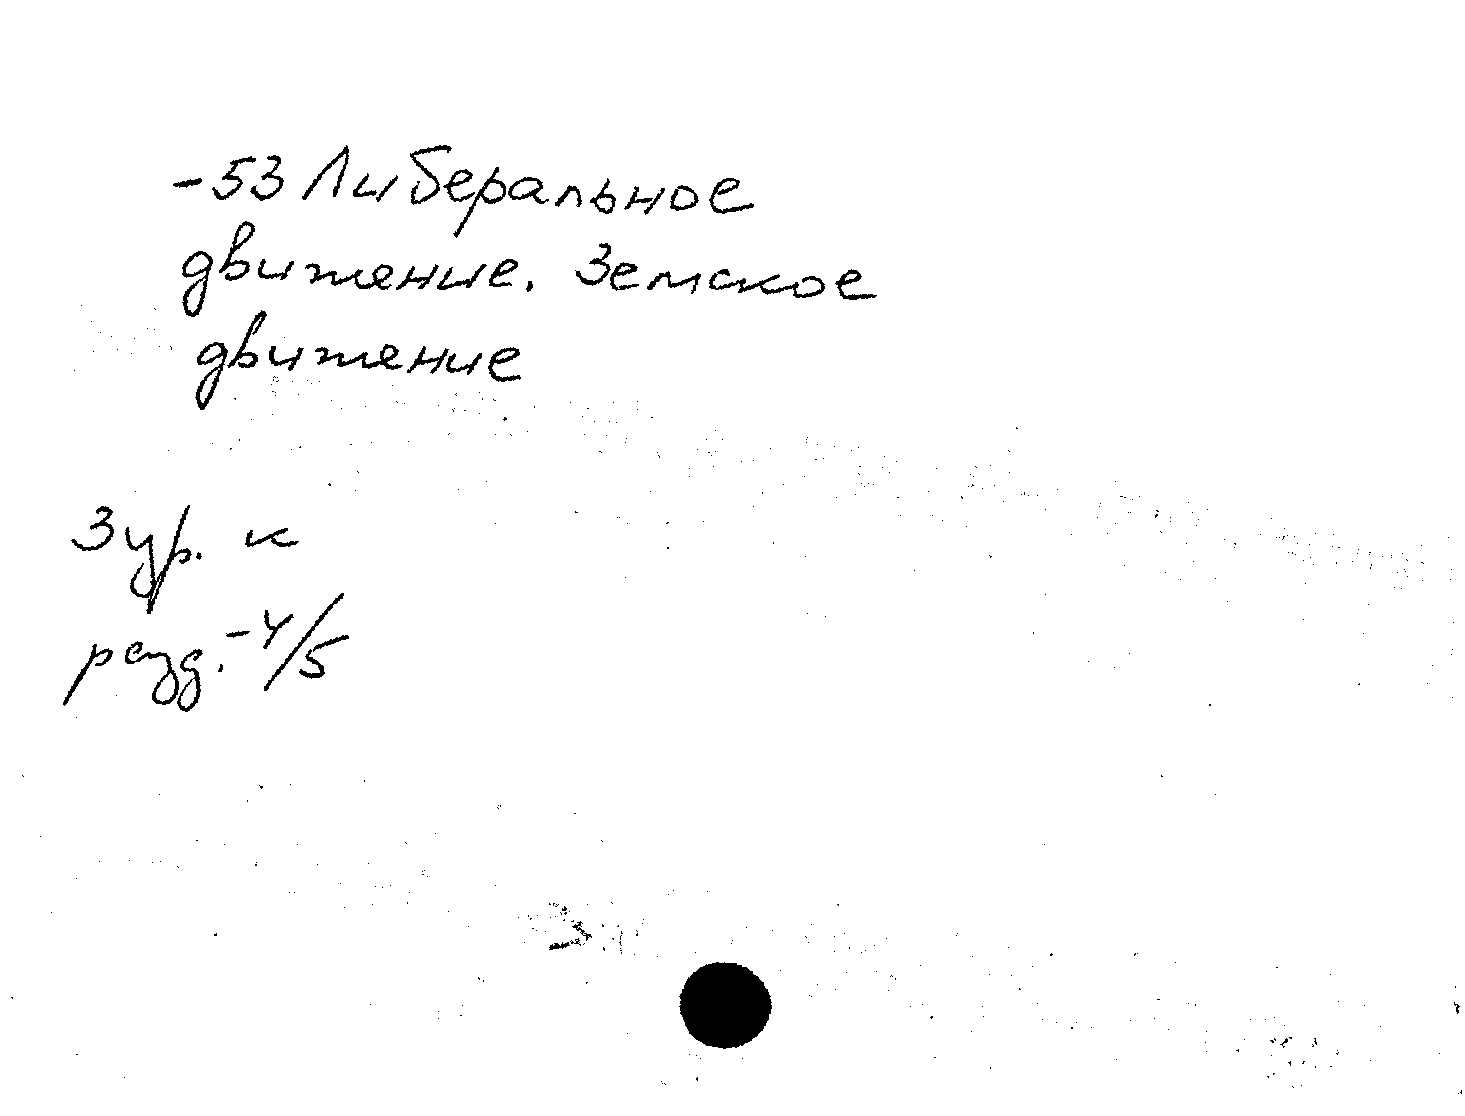 -53 Либеральное
движение. Земское
движение
3 ур. к
разд. -4/5